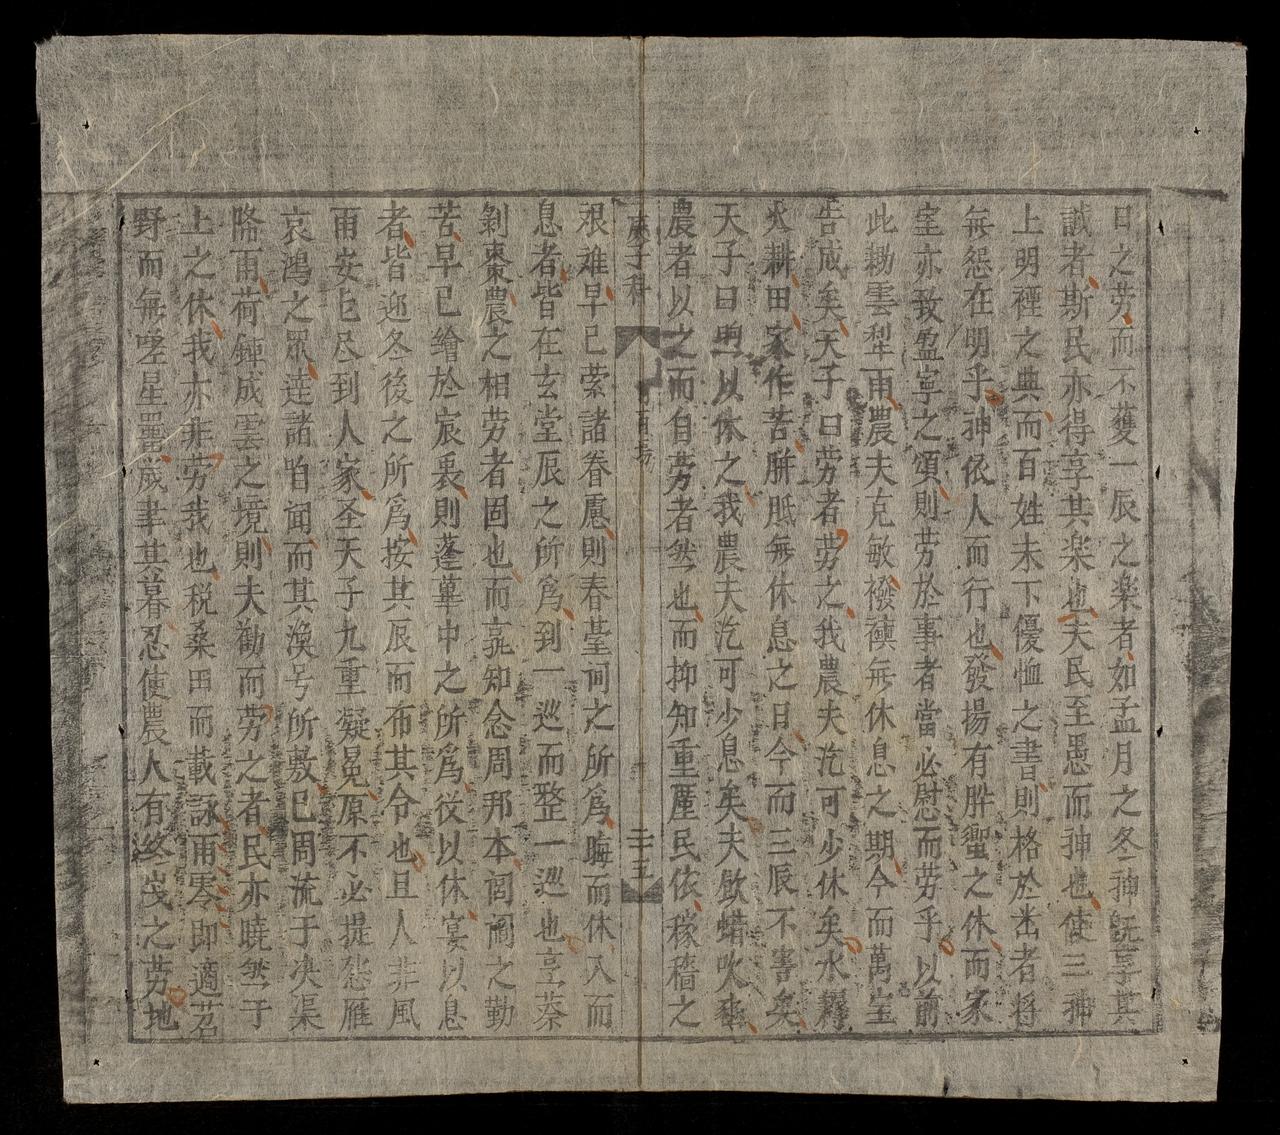 日之劳而不獲一辰之楽者如孟月之冬神既享其
誠者斯民亦得享其楽也夫民至愚而神也使三神
上明禋之典而百姓未下優恤之書則格於出者将
無怨在明乎神依人而行也發揚有肸蠁之休而家
室亦致盈寧之頌則劳於事者當必慰而劳乎以前
此耡雲犁雨農夫克敏襏襫無休息之期今而萬宝
告成矣天子曰劳者劳之我農夫汔可少休矣水耨
火耕田家作苦胼胝無休息之日今而三辰不害矣
天子曰 以休之我農夫汔可少息矣夫飲蜡吹豳
農者以之而自劳者然也而抑知重歷民依稼穡之
慶子科
二十五
艰难早已萦諸眷慮則春臺祠之所為晦而休入而
息者皆在玄堂辰之所為到一巡而整一巡也亨蔡
剝棗農之相劳者固也而寧知念周邦本閭閻之勤
苦早已繪於宸衷則蓬蓽中之所為従以休宴以息
者皆迎冬後之所為按其辰而布其令也且人非風
雨安能尽到人家圣天子九重凝冕原不必提愁雁
哀鴻之眾逹諸咱闻而其渙号所敷已周流于决渠
降雨荷鍤成雲之境則夫勧而劳之者民亦曉然于
上之休我亦非劳我也税桑田而載詠雨零即適苕
野而無嗟星罶成聿其暮忍使農人有終歲之劳地